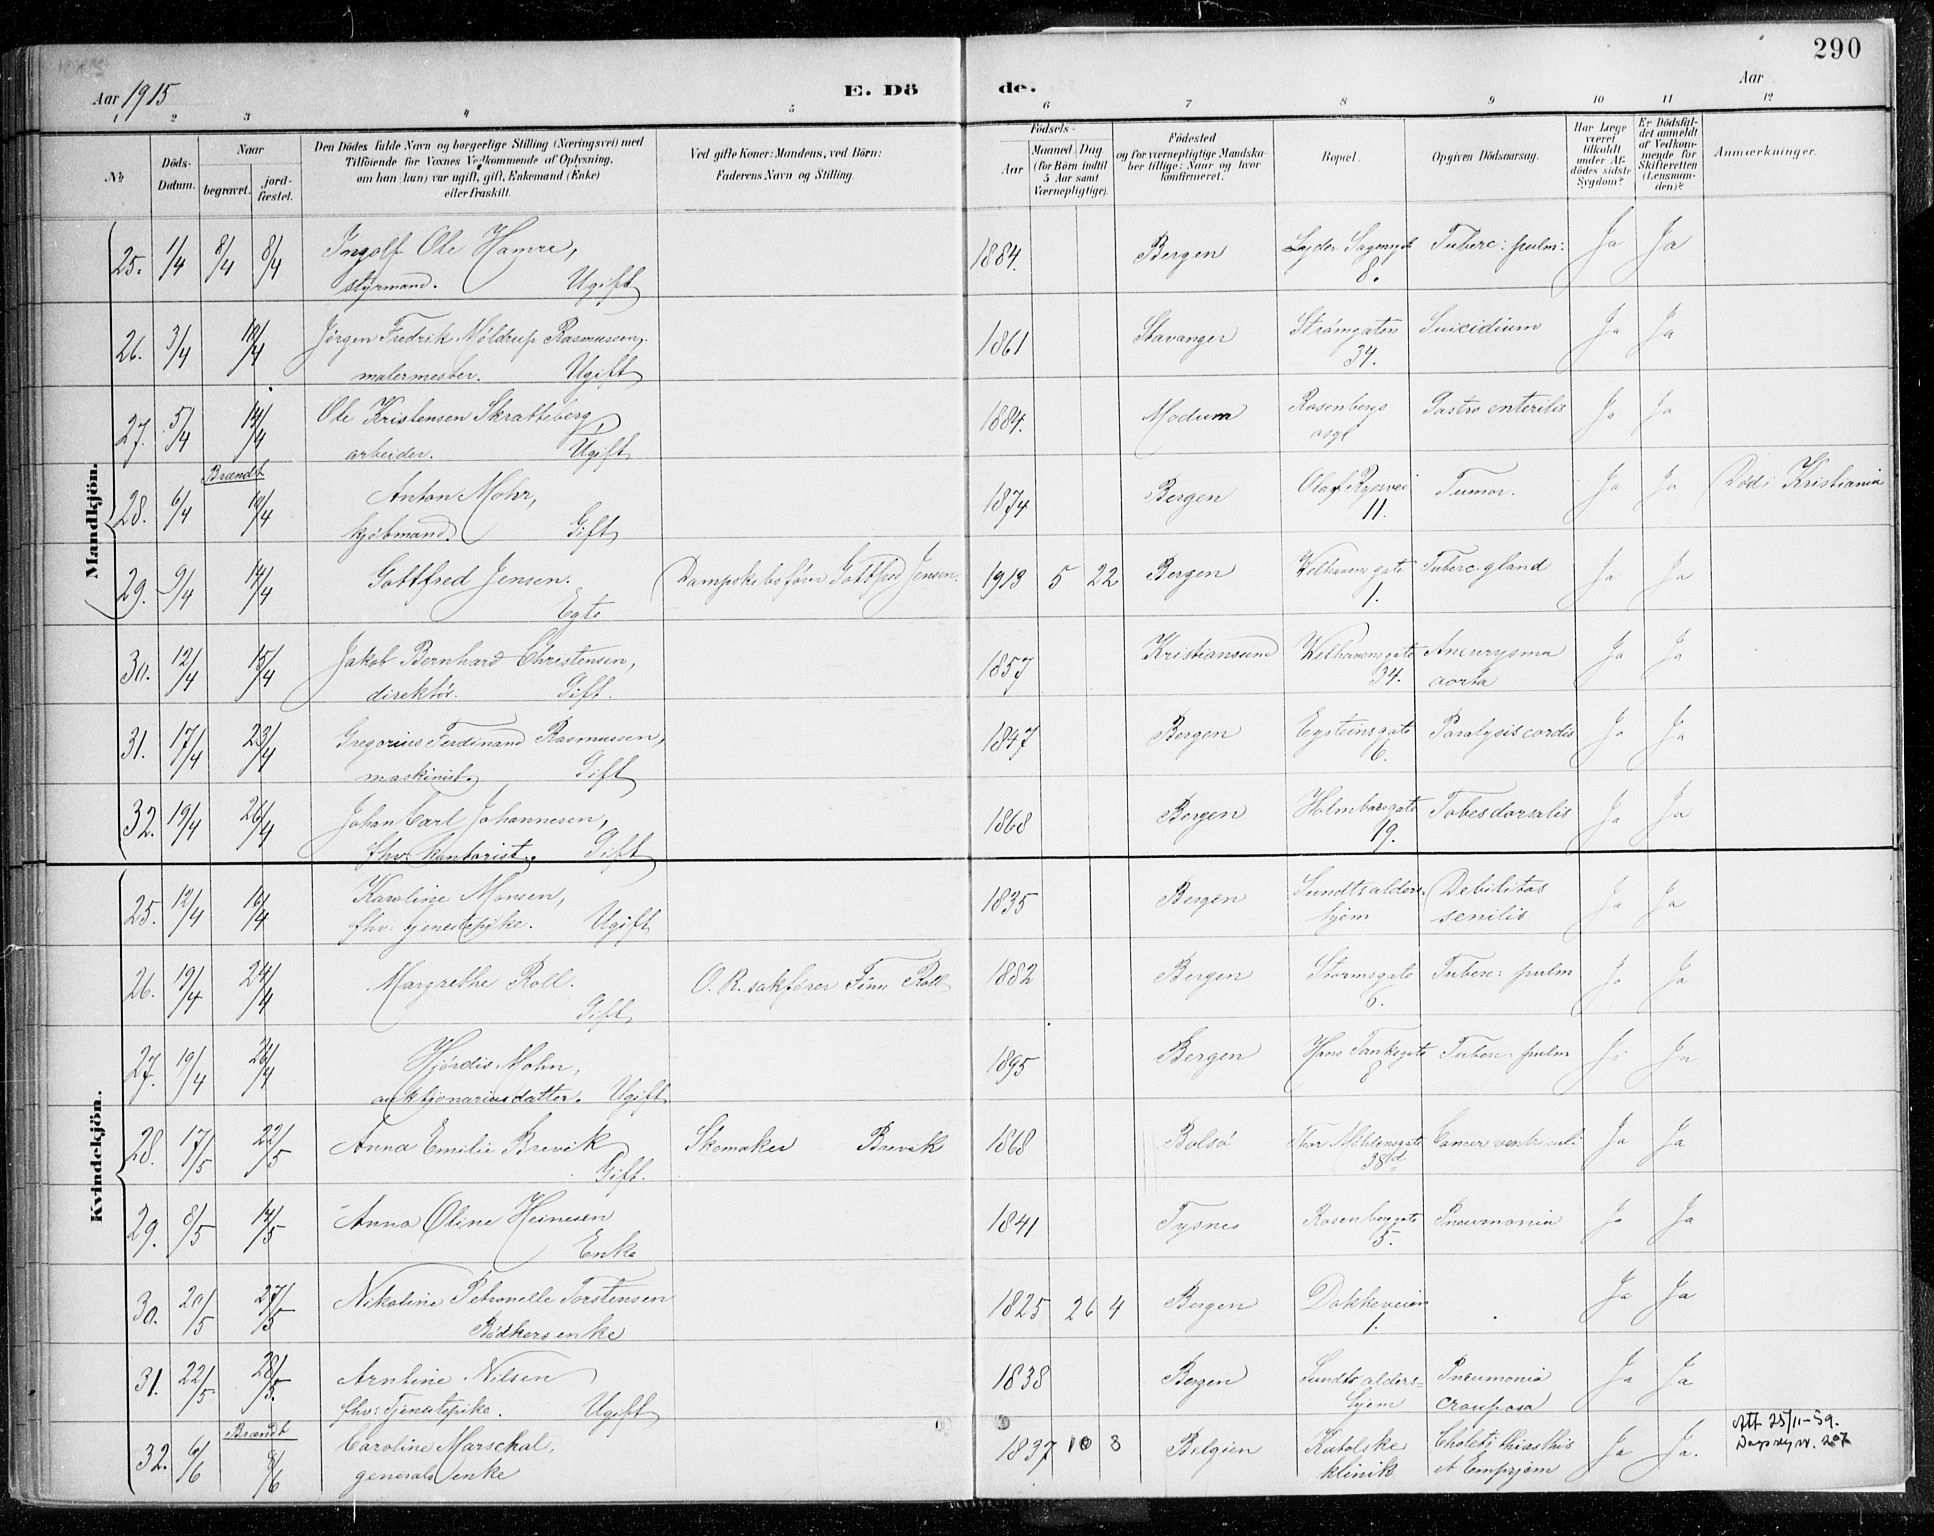 290
Aar 1915
E. Dö
de.
Aar
1 2 3 4 5 6 7 8 9 10 11 12
№
Döds-
Datum.
Naar
begravet.
jord-
fæstet.
Den Dödes fulde Navn og borgerlige Stilling (Næringsvei) med
Tilföiende for Voxnes Vedkommende af Oplysning,
om han (hun) var ugift, gift, Enkemand (Enke)
eller fraskilt.
Ved gifte Koner: Mandens, ved Börn:
Faderens Navn og Stilling.
Födsels-
Aar
Maaned. Dag
(for Börn indtil
5 Aar samt
Værnepligtige).
Födested
og for værnepligtige Mandska-
ber tillige: Naar og hvor
konfirmeret.
Bopæl.
Opgiven Dödsaarsag.
Har Læge
været
tilkaldt
under Af-
dödes sidste
Sygdom?
Er Dödsfal-
det anmeldt
af Vedkom-
mende for
Skifteretten
(Lensman-
den)?
Anmærkninger.
Mandkjön.
25. 1/4 8/4 8/4 Ingolf Ole Hamre, 1884. Bergen Lyder Sagensgt Tuberc: pulm: Ja Ja
styrmand. Ugift 8.
26. 3/4 10/4 Jørgen Fredrik Møldrup Rasmussen, 1861 Stavanger Strømgaten Suicidium Ja Ja
malermester. Ugift 34.
27. 5/4 14/4 Ole Kristensen Skratteberg 1884. Modum Rosenbergs Gastro enteritis Ja Ja
arbeider. Ugift asyl
Brændt
28. 6/4 10/4 Anton Mohr, 1874 Bergen Olaf Ryesvei Tumor. Ja Ja Död i Kristiania
kjøbmand. Gift 11.
29. 9/4 14/4 Gottfred Jensen. Dampskibsfører Gottfred Jensen. 1913 5 22 Bergen Welhavensgate Tuberc. gland Ja Ja
Egte 1.
30. 12/4 15/4 Jakob Bernhard Christensen, 1857 Kristiansund Welhavensgate Aneurysma Ja Ja
direktör. Gift. 34. aorta
31. 17/4 23/4 Gregorius Ferdinand Rasmussen, 1847 Bergen Eysteinsgate Paralysis cordis Ja Ja
maskinist. Gift 6.
32. 19/4 26/4 Johan Carl Johannesen, 1868 Bergen Holmboesgate Tabes dorsalis Ja Ja
fhv. kontorist. Gift 19.
Kvindekjön.
25. 12/4 16/4 Karoline Monsen, 1835 Bergen Sundts alders- Debilitas Ja Ja
fhv. tjenestepike. Ugift hjem senilis
26. 19/4 24/4 Margrethe Roll. O. R. sakfører Finn Roll 1882 Bergen Stormsgate Tuberc: pulm Ja Ja
Gift, 6.
27. 19/4 26/4 Hjördis Mohn, 1895 Bergen Hans Tanksgate Tuberc: pulm Ja Ja
auktionariusdatter. Ugift 8
28. 17/5 22/5 Anna Emilie Brevik Skomaker Brevik 1868 Bolsö Thor Möhlensgate Cancer ventriculi Ja Ja
Gift. 38d
29. 8/5 14/5 Anna Oline Heinesen 1841 Tysnes Rosenberggate Pneumonia Ja Ja
Enke 5.
30. 20/5 27/5 Nikoline Petronelle Torstensen 1825 26 4 Bergen Dokkeveien Ja Ja
Bödkersenke 1.
31. 22/5 28/5. Arntine Nilsen 1838 Bergen Sundts alders- Pneumonia Ja Ja
fhv: Tjenestepike. Ugift hjem crouposa
Brændt
32. 6/6 9/6 Caroline Marschal, 1837 10 3 Belgien Katolske Ja Ja. Att 25/11-59.
generals enke klinik et Empyem Dagsej nr. 207